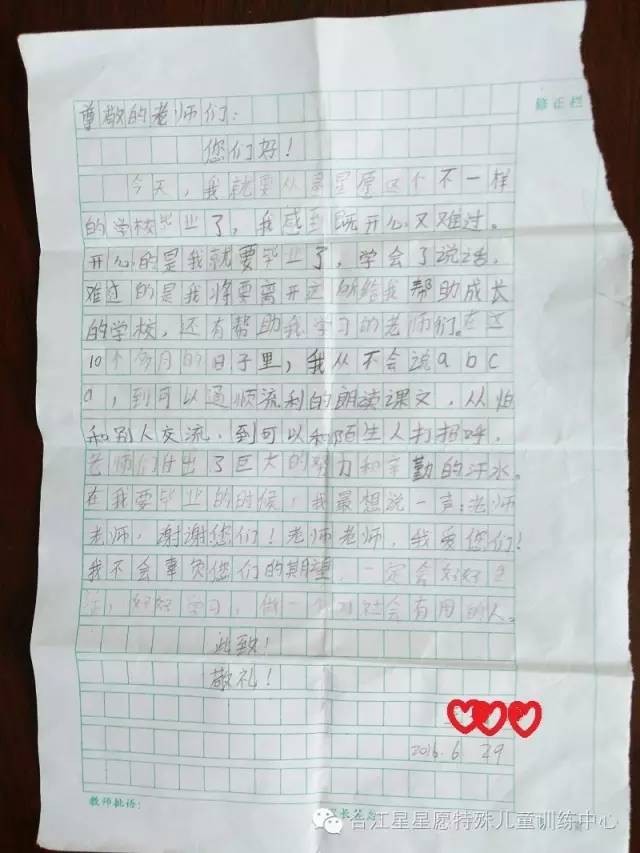 尊敬的老师们:
修正栏
您们好!
今天,我就要从星星愿这个不一样
的学校毕业了,我感到既开心又难过。
开心的是我就要毕业了,学会了说话,
难过的是我将要离开这所给我帮助成长
的学校,还有帮助我学习的老师们。在这
10个多月的日子里,我从不会说a b c
d,到可以通顺流利的朗读课文,从怕
和别人交流,到可以和陌生人打招呼,
老师们付出了巨大的努力和辛勤的汗水。
在我要毕业的时候,我最想说一声:老师
老师,谢谢您们!老师老师,我爱您们!
我不会辜负您们的期望,一定会好好
好好学习,做一个对社会有用的人。
此致!
敬礼!
2016.6.29
教师批语:
家长签名
合江星星愿特殊儿童训练中心